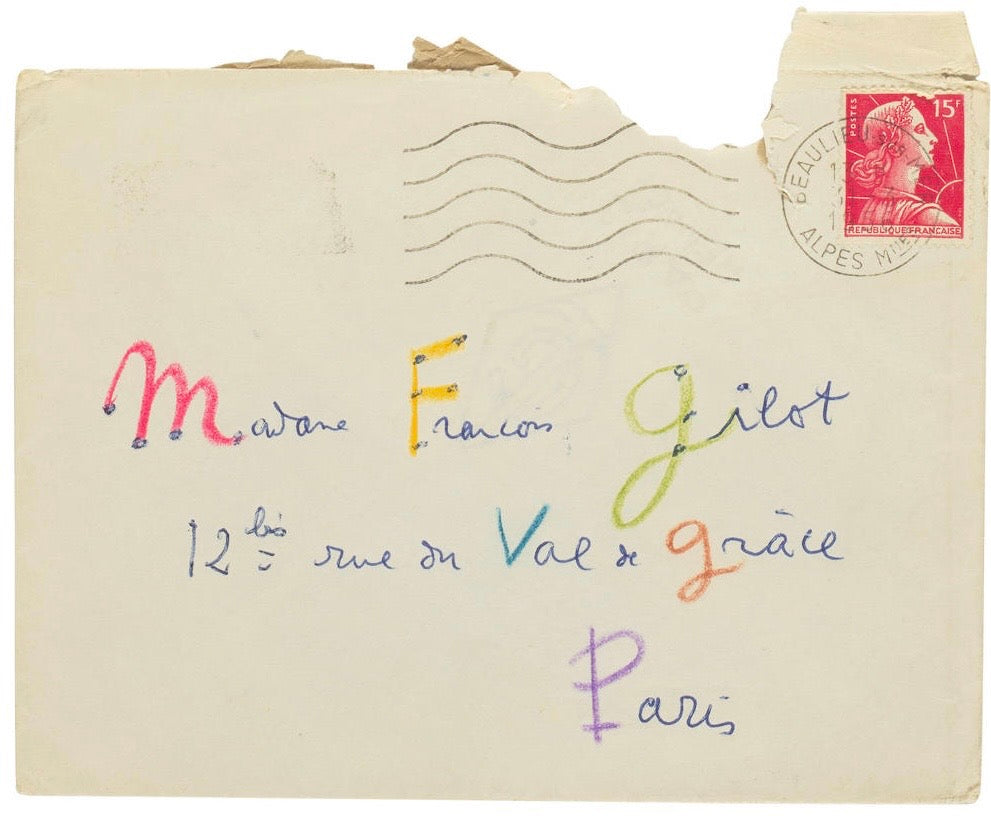 POSTES 15F
REPUBLIQUE FRANCAISE
BEAULIEU
ALPES Mmes
Madame Francois Gilot
12 bis rue du Val de grâce
Paris